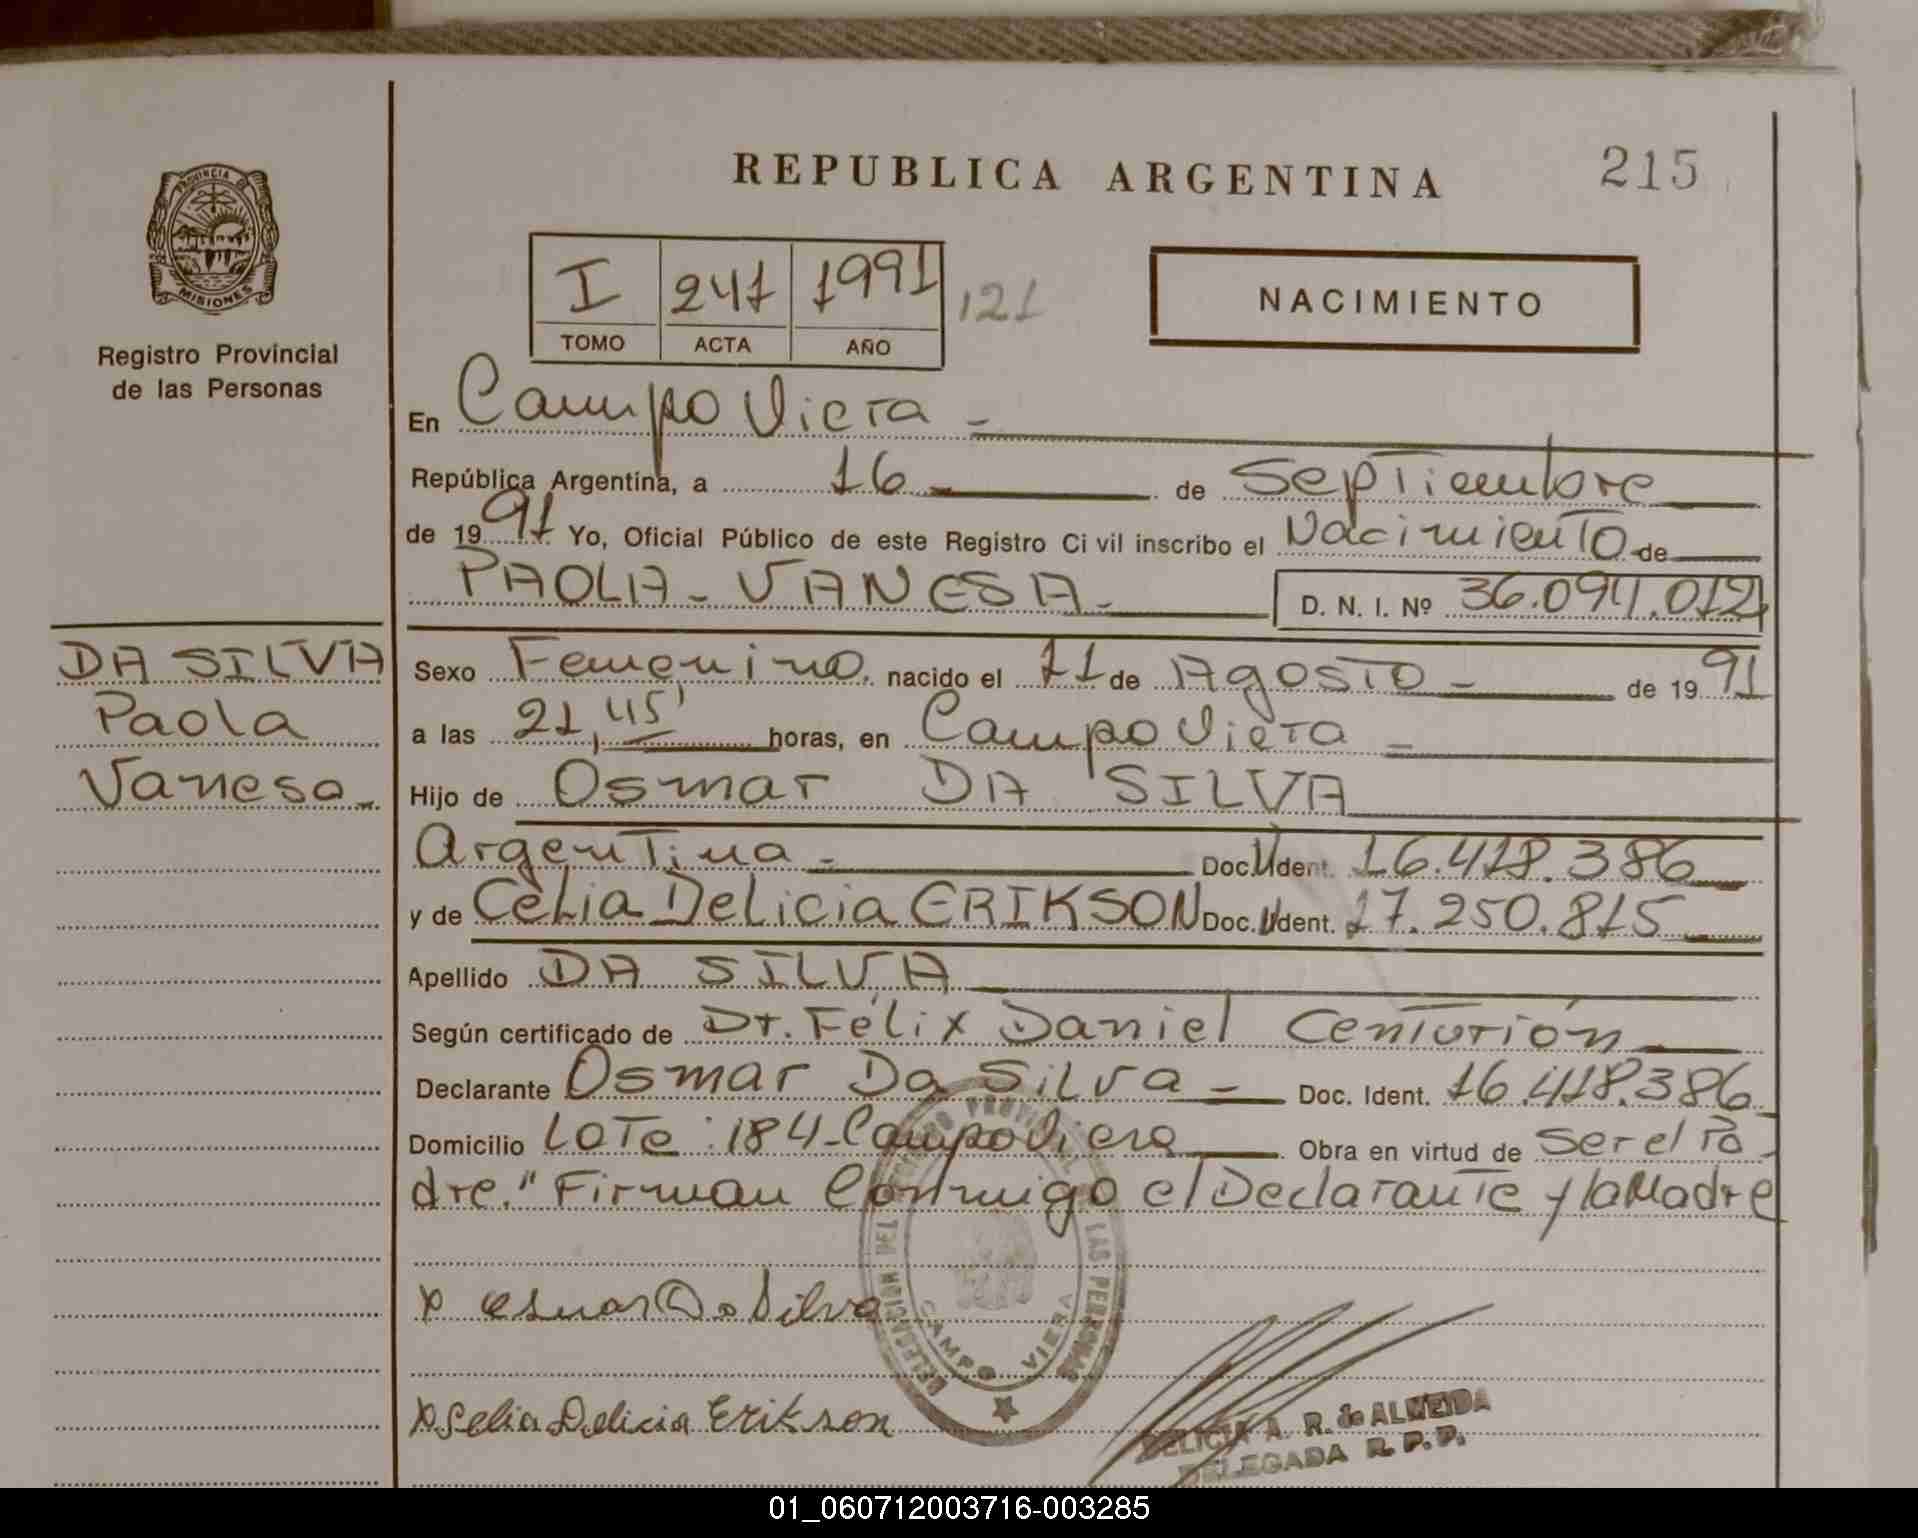 REPUBLICA ARGENTINA
215
PROVINCIA DE
MISIONES
Registro Provincial
de las Personas
I 241 1991
TOMO ACTA AÑO
121
NACIMIENTO
En Campo Viera -
República Argentina, a 16 de Septiembre
de 1991 Yo, Oficial Público de este Registro Civil inscribo el Nacimiento de
PAOLA - VANESA - D. N. I. Nº 36.094.012
DA SILVA
Paola
Vanesa
Sexo Femenino nacido el 11 de Agosto - de 1991
a las 21,45' horas, en Campo Viera -
Hijo de Osmar DA SILVA
Argentina - Doc. Ident. 16.418.386
y de Celia Delicia ERIKSON Doc. Ident. 17.250.815
Apellido DA SILVA
Según certificado de Dr. Félix Daniel Centurión
Declarante Osmar Da Silva - Doc. Ident. 16.418.386
Domicilio Lote: 184 - Campo Viera Obra en virtud de ser el Pa
dre." Firman Conmigo el Declarante y la Madre
x Osmar Da Silva
x Selia Delicia Erikson
DELEGACION DEL REGISTRO PROVINCIAL DE LAS PERSONAS
CAMPO VIERA
DELICIA A. R. de ALMEIDA
DELEGADA R. P. P.
01_060712003716-003285